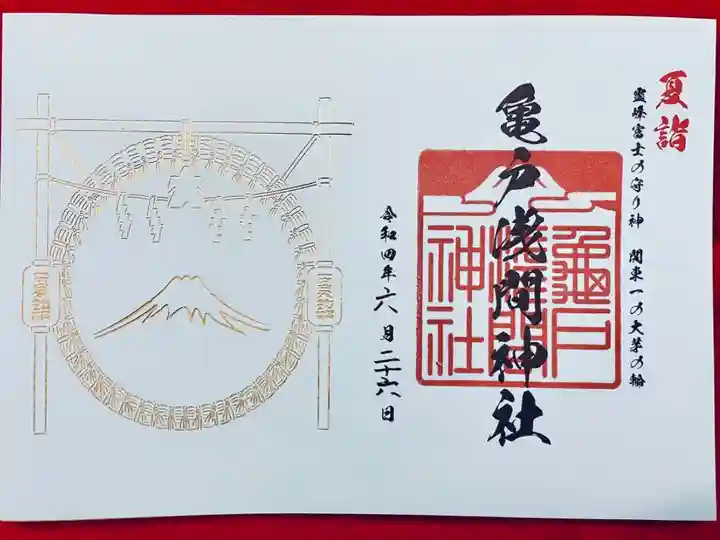 夏詣
霊峰富士の守り神 関東一の大茅の輪
亀戸浅間神社
龜戸
浅間
神社
令和四年六月二十六日
夏詣
夏詣